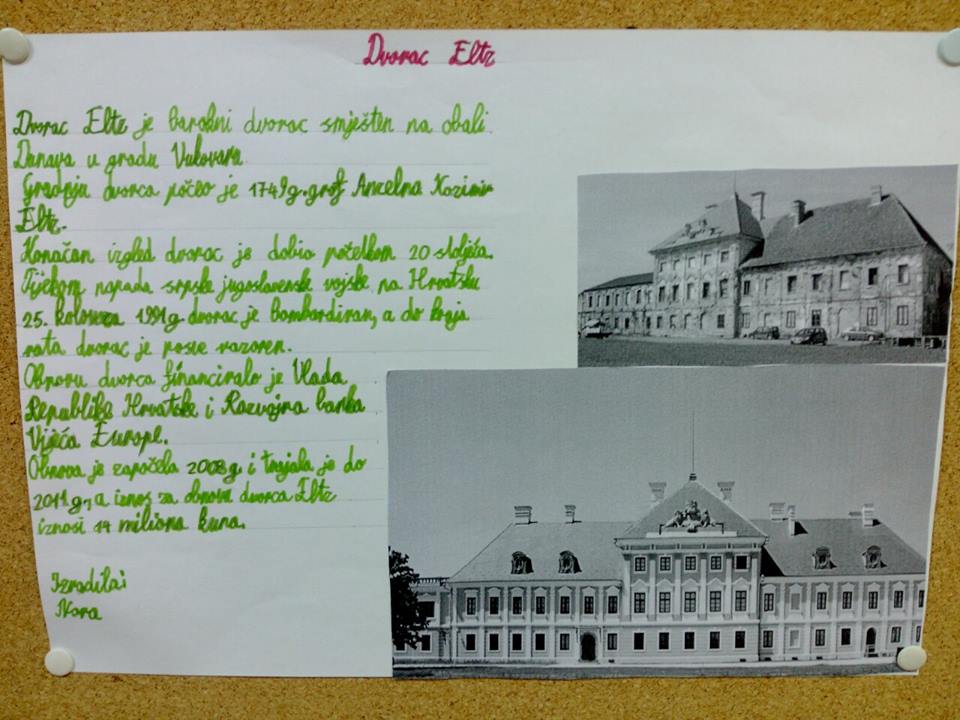 Dvorac Eltz
Dvorac Eltz je barokni dvorac smješten na obali
Dunava u gradu Vukovaru
Gradnju dvorca počeo je 1749g. grof Anzelma Kazimir
Eltz.
Konačan izgled dvorac je dobio početkom 20 stoljeća.
Tijekom napada srpske jugoslavenske vojske na Hrvatsku
25. kolovoza 1991g. dvorac je bombardiran, a do kraja
rata dvorac je posve razoren.
Obnovu dvorca financiralo je Vlada
Republike Hrvatske i Razvojna banka
Vijeća Europe.
Obnova je započela 2008g. i trajala je do
2011g., a iznos za obnovu dvorca Eltz
iznosi 14 miliona kuna.
Izradila:
Nora